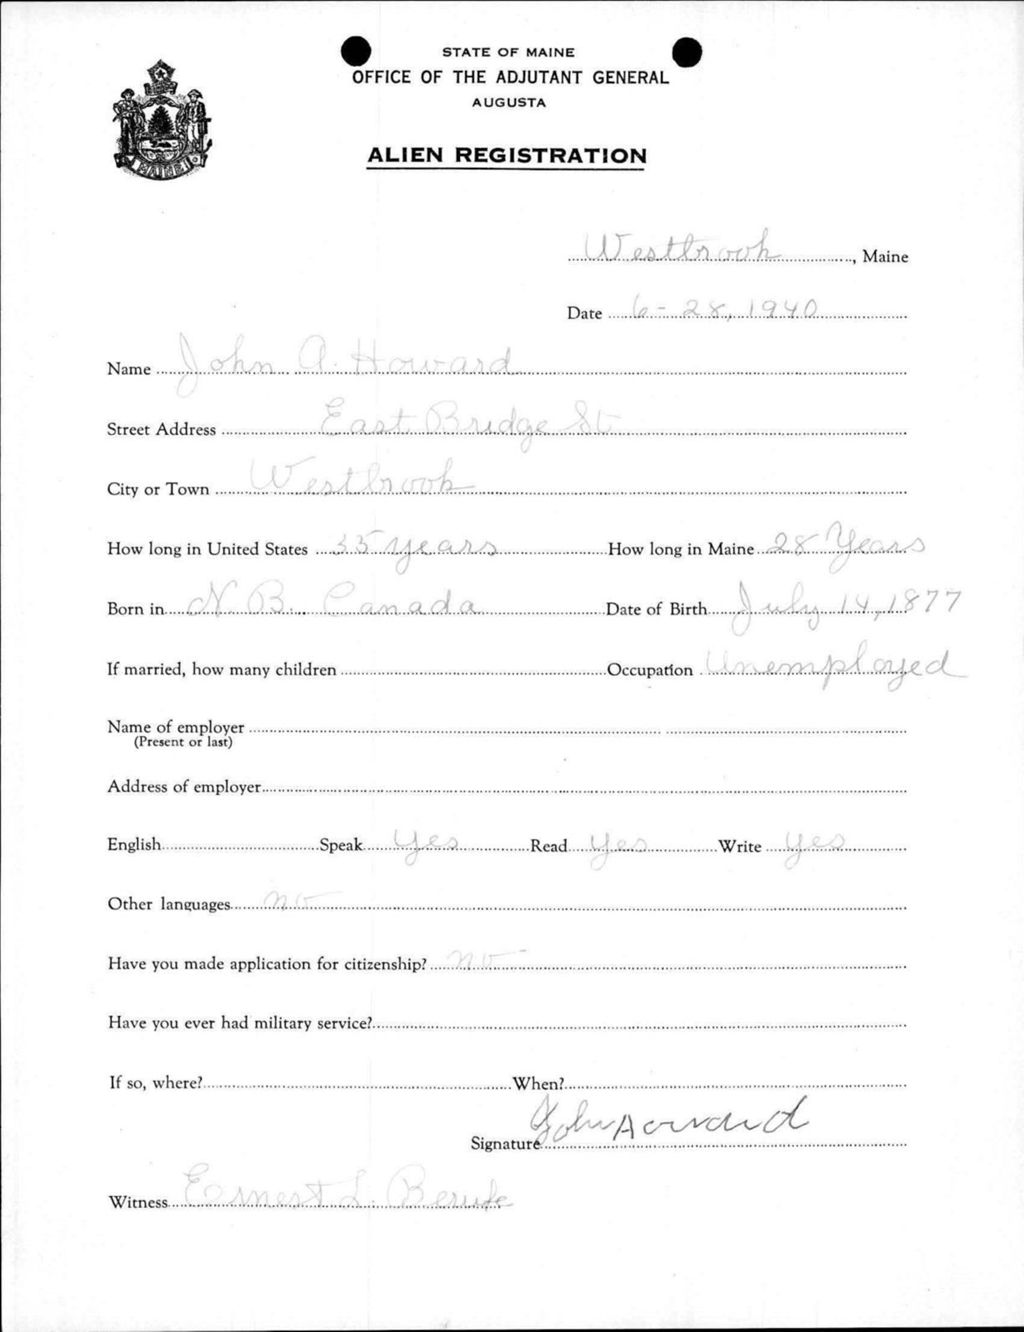 STATE OF MAINE
OFFICE OF THE ADJUTANT GENERAL
AUGUSTA
ALIEN REGISTRATION
MAINE
Westbrook, Maine
Date 6-28, 1940
Name John A. Howard
Street Address East Bridge St
City or Town Westbrook
How long in United States 35 years How long in Maine 28 Years
Born in N. B. Canada Date of Birth July 14, 1877
If married, how many children Occupation Unemployed
Name of employer
(Present or last)
Address of employer
English Speak Yes Read Yes Write Yes
Other languages no
Have you made application for citizenship? no
Have you ever had military service?
If so, where? When?
Signature John Howard
Witness Ernest L.